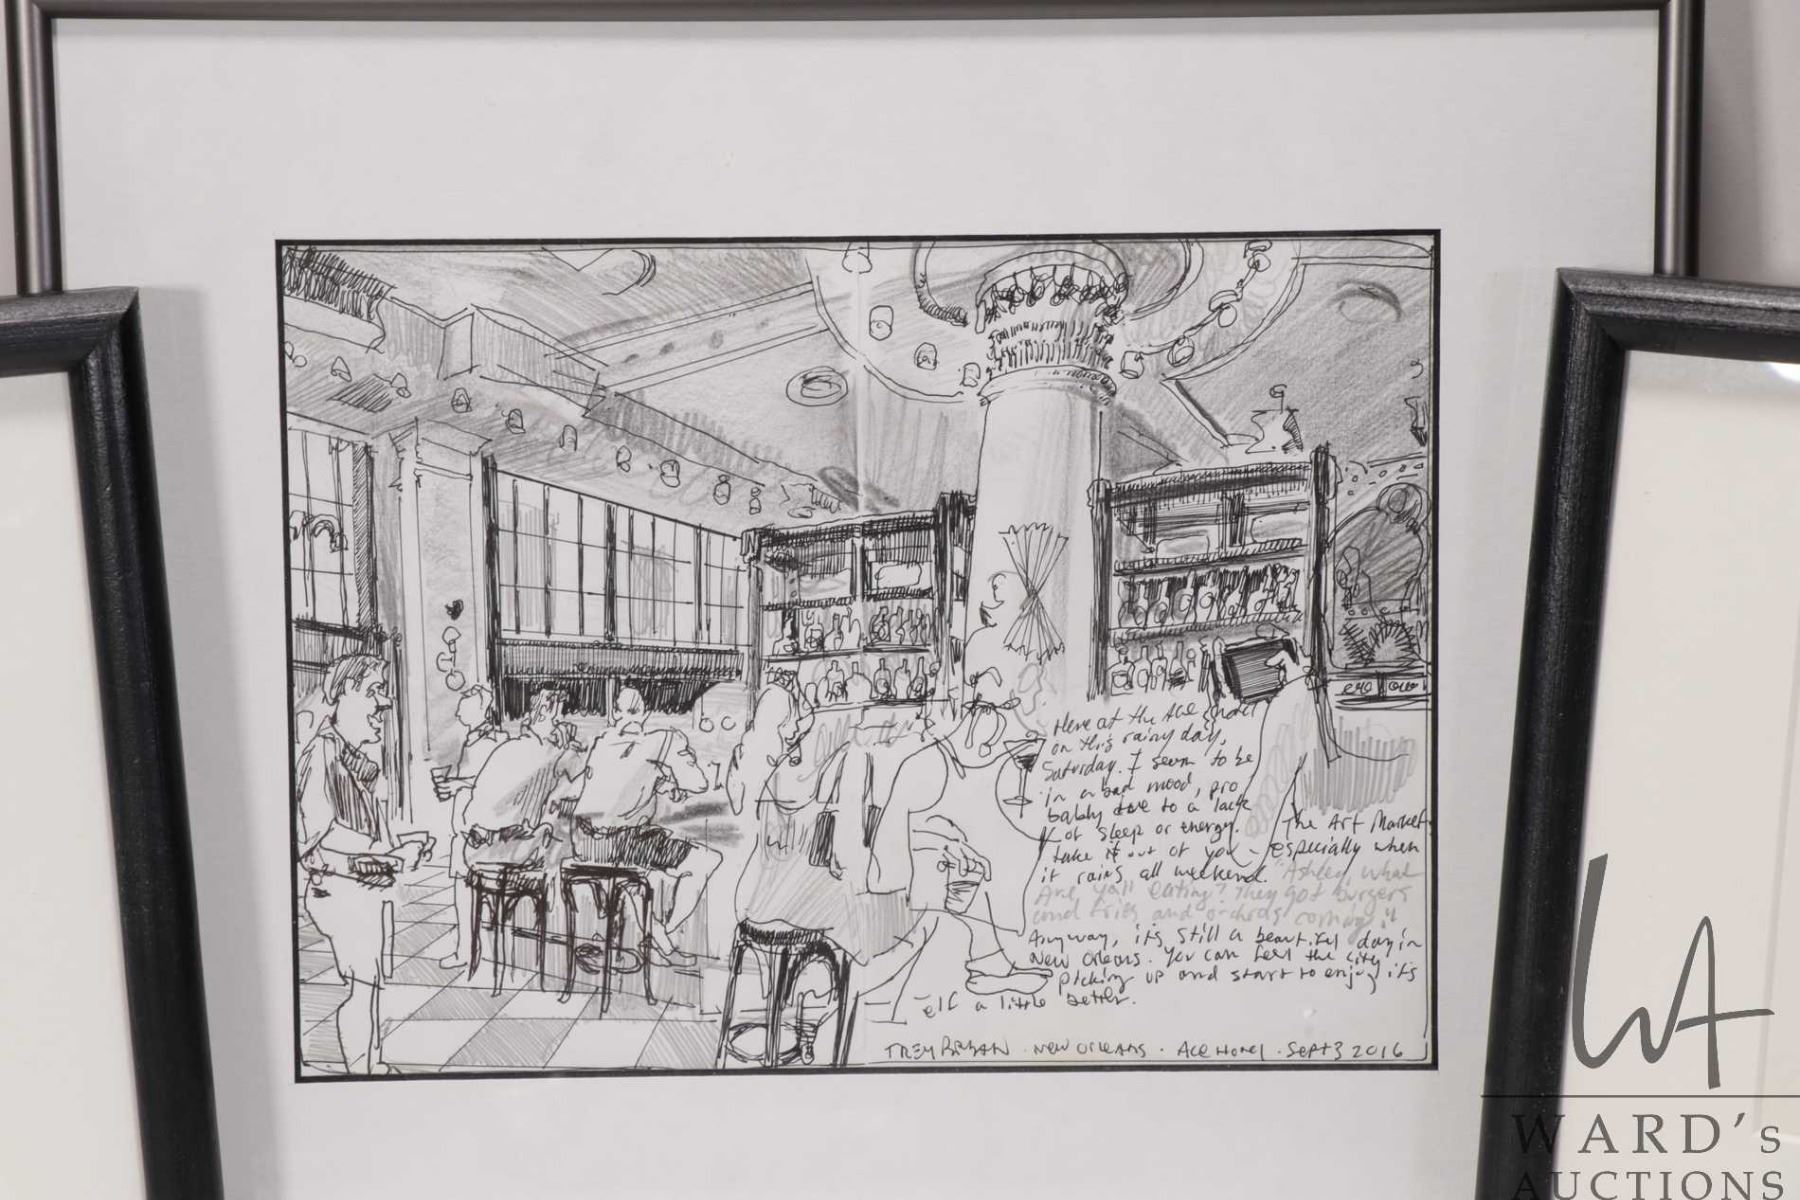 Here at the Ace Hotel
on this rainy day,
Saturday. I seem to be
in a bad mood, pro
bably due to a lack
of sleep or energy. The Art Market
take it out of you - especially when
it rains all weekend. "Ashley, what
Are y'all eating? They got burgers
and fries and orchids coming."
Anyway, it's still a beautiful day in
New Orleans. You can feel the city
picking up and start to enjoy it's
elf a little better.
TREY BRYAN · NEW ORLEANS · ACE HOTEL · SEPT 3 2016
WA
WARD's
AUCTIONS